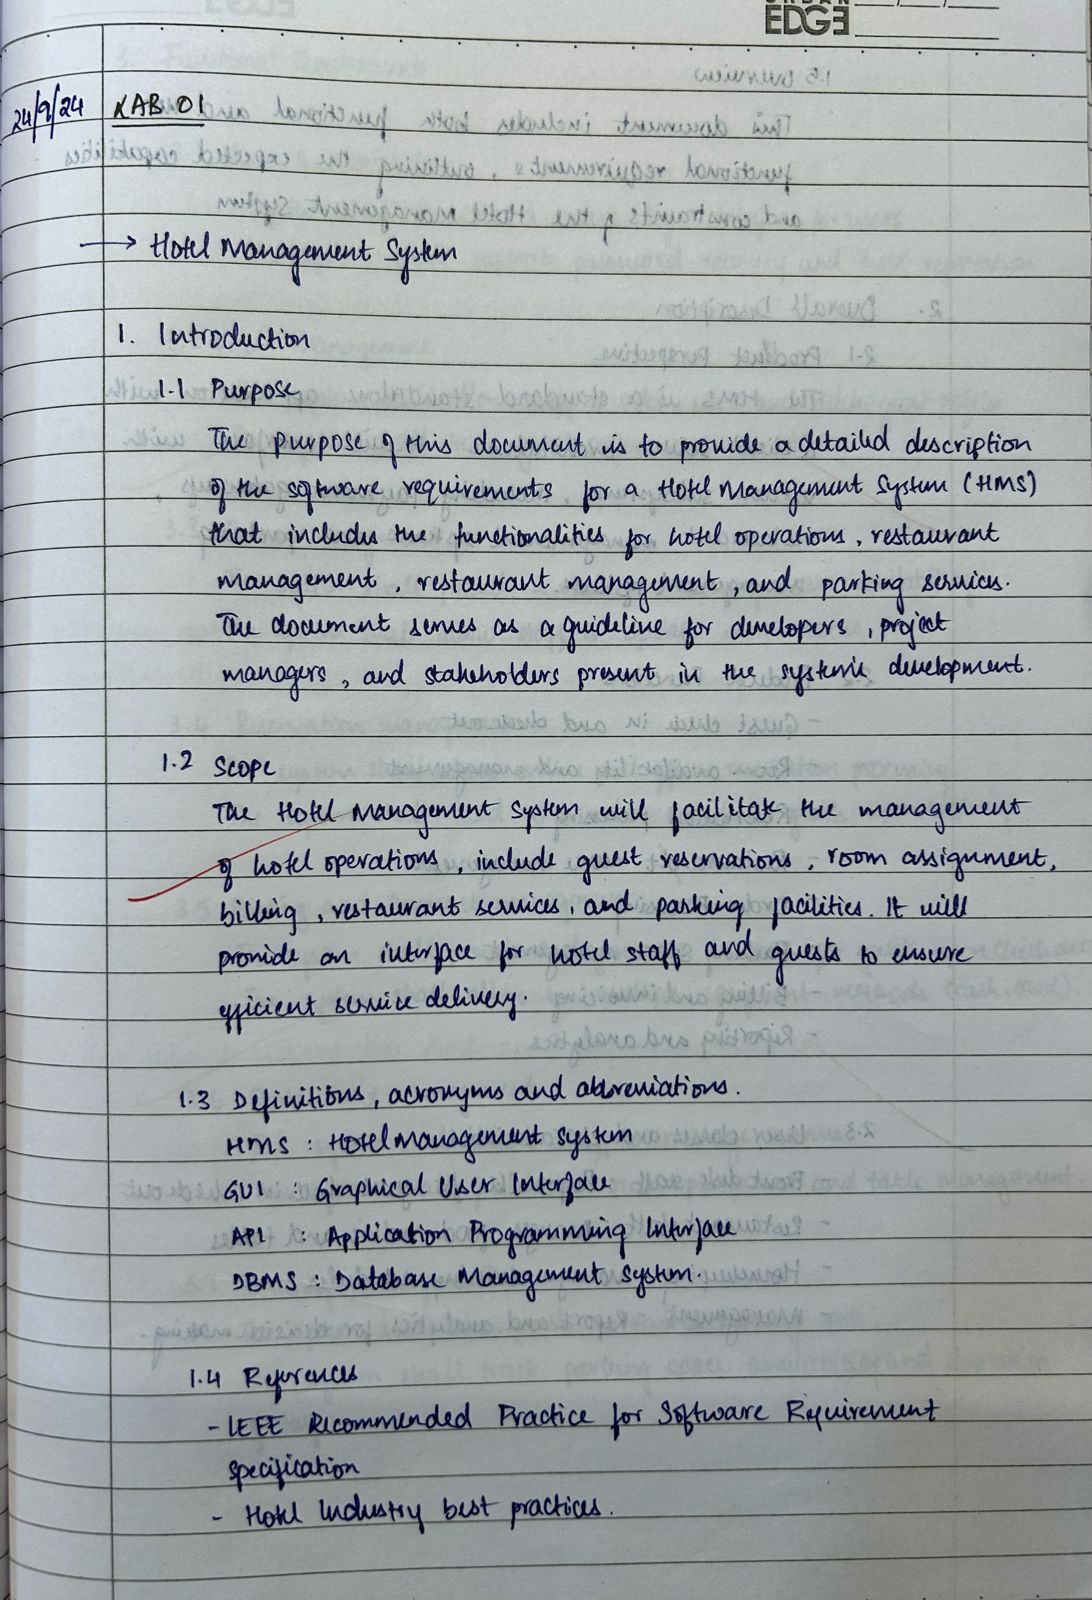 EDGE
24/9/24 LAB 01
→ Hotel Management System
1. Introduction
1.1 Purpose
The purpose of this document is to provide a detailed description
of the software requirements for a Hotel Management System (HMS)
that includes the functionalities for hotel operations, restaurant
management, restaurant management, and parking services.
The document serves as a guideline for developers, project
managers, and stakeholders present in the system's development.
1.2 Scope
The Hotel Management System will facilitate the management
of hotel operations, include guest reservations, room assignment,
billing, restaurant services, and parking facilities. It will
provide an interface for hotel staff and guests to ensure
efficient service delivery.
1.3 Definitions, acronyms and abbreviations.
HMS : Hotel Management System
GUI : Graphical User Interface
API : Application Programming Interface
DBMS : Database Management System.
1.4 References
- IEEE Recommended Practice for Software Requirement
Specification
- Hotel Industry best practices.